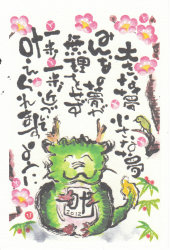 大きな夢 小さな夢
みんなの夢が
無理をせず
一歩一歩近づき
叶えられますように
叶
2012